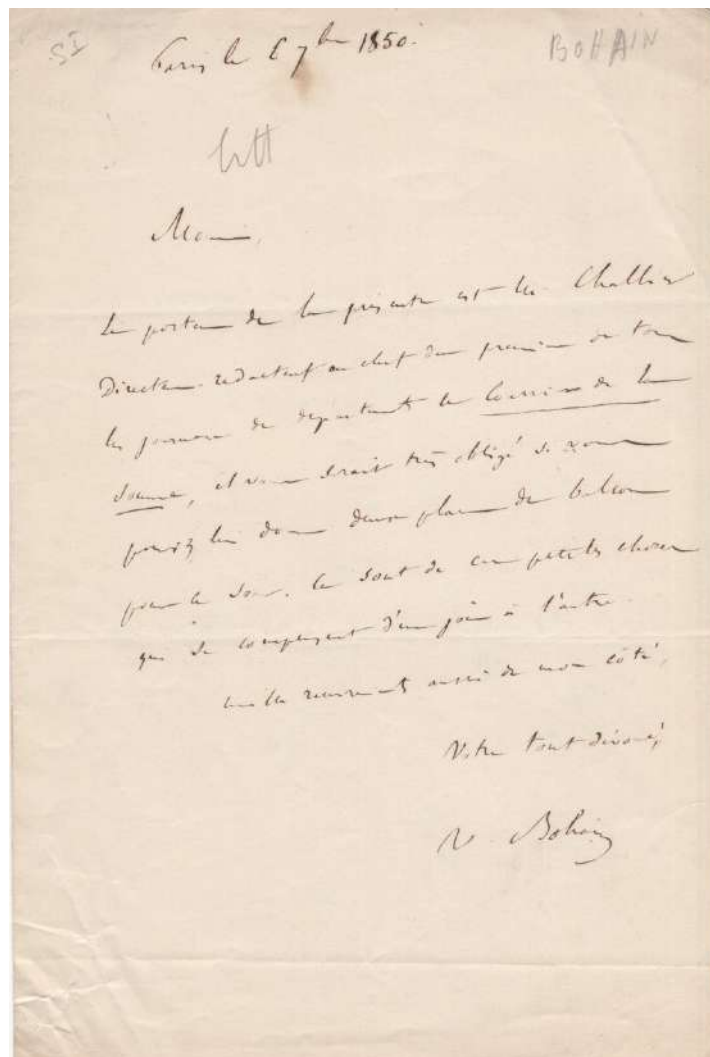 SI
Paris le 6 7bre 1850.
BOHAIN
Litt
Monsieur,
Le porteur de la présente est Mr Challier
Directeur-rédacteur en chef d'un premier de tous
les journaux de départements le Courrier de la
Somme, il vous serait très obligé si vous
pouviez lui donner deux places de balcon
pour ce soir. Ce sont de ces petites choses
qui se compensent d'un jour à l'autre.
mille remerciements aussi de mon côté,
Votre tout dévoué,
V. Bohain